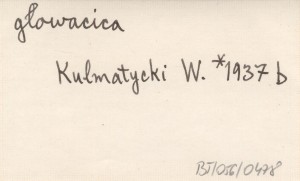 głowacica
Kulmatycki W. *1937 b
BJ/056/0478